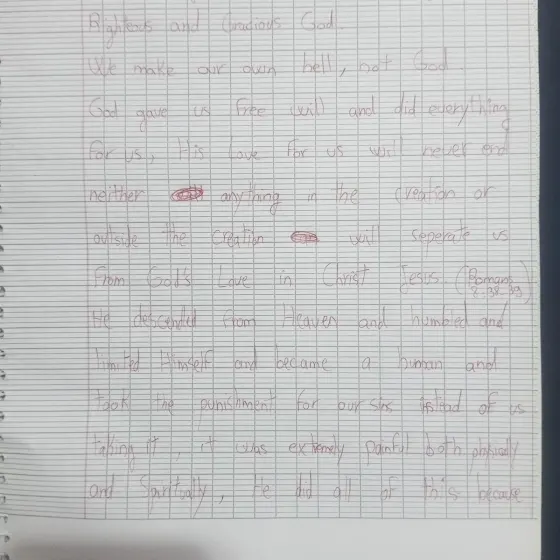 Righteous and Gracious God.
We make our own hell, not God.
God gave us free will and did everything
for us, His Love for us will never end
neither anything in the creation or
outside the creation will seperate us
from God's Love in Christ Jesus. (Romans
8:38,39)
He descended from Heaven and humbled and
limited Himself and became a human and
took the punishment for our sins instead of us
taking it, it was extremely painful both physically
and Spiritually, He did all of this because